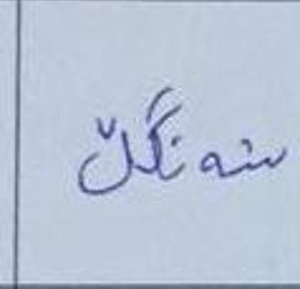 سەنگڵ